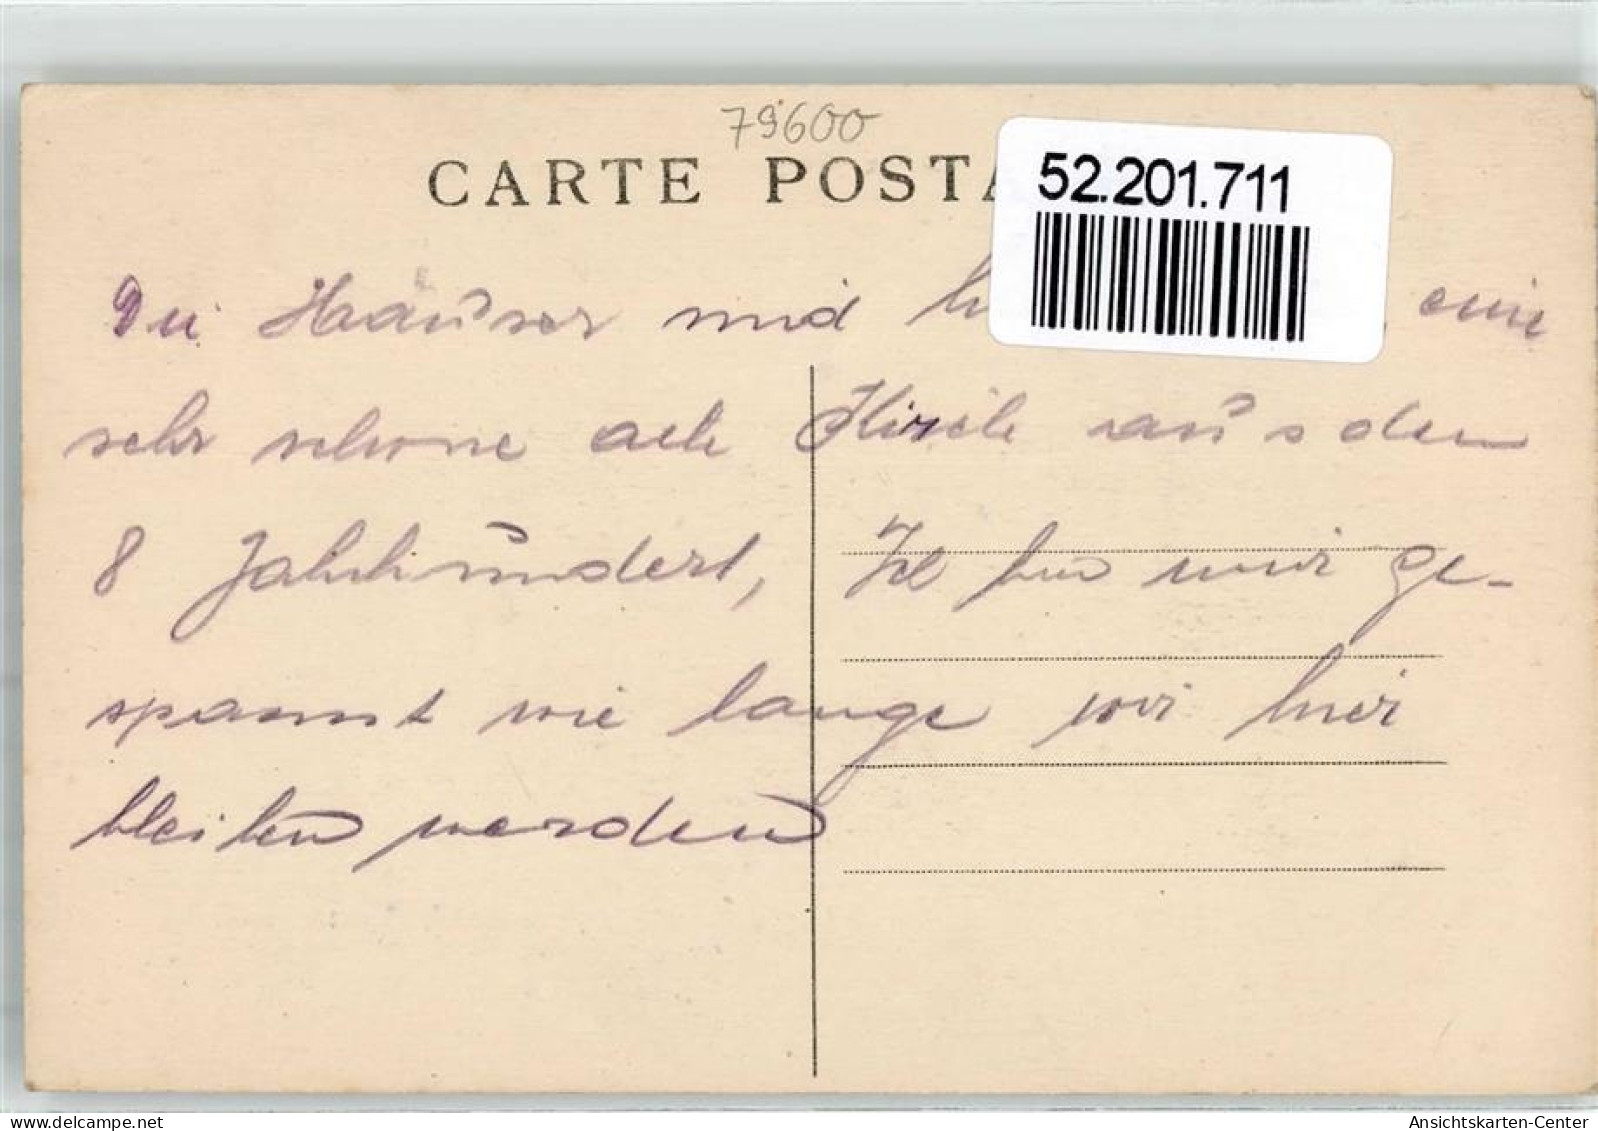 79600
CARTE POSTA
52.201.711
Die Haüser sind h , eine
sehr schöne alte Kirche aus dem
8 Jahrhundert, Ich bin nur ge-
spannt wie lange wir hier
bleiben werden
Ansichtskarten-Center